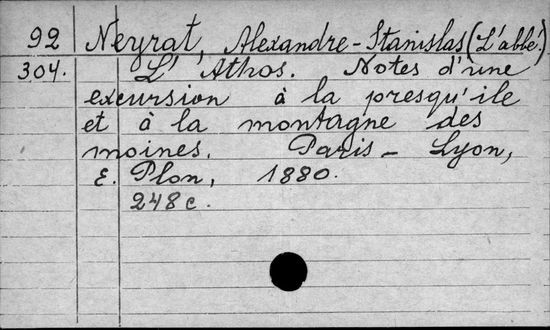 92 Neyrat, Alexandre-Stanislas (L'abbé.)
304. L'Athos. Notes d'une
excursion à la presqu'ile
et à la montagne des
moines. Paris - Lyon,
E. Plon, 1880.
248 c.